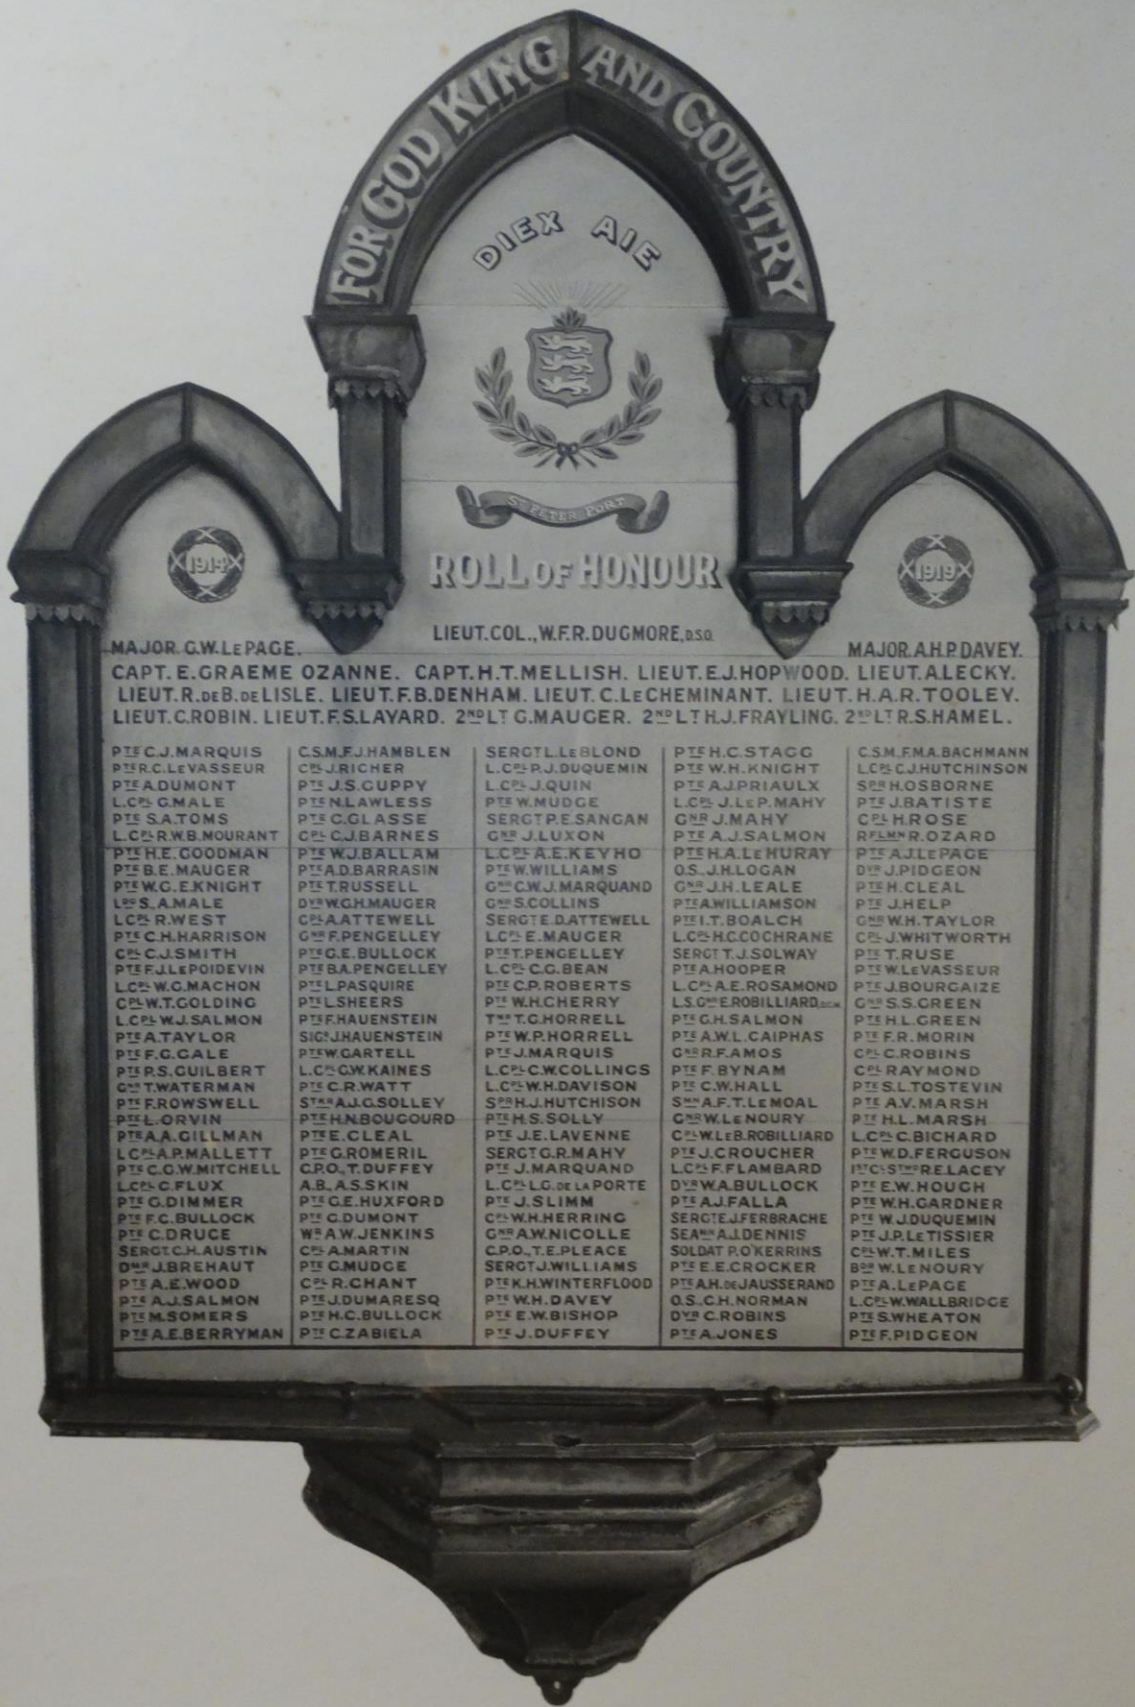 FOR GOD KING AND COUNTRY
DIEX AIE
ST PETER PORT
1914
1919
ROLL OF HONOUR
LIEUT. COL., W.F.R. DUGMORE, D.S.O.
MAJOR. G.W. LE PAGE. MAJOR. A.H.P. DAVEY.
CAPT. E. GRAEME OZANNE. CAPT. H.T. MELLISH. LIEUT. E.J. HOPWOOD. LIEUT. A. LECKY.
LIEUT. R. DE B. DE LISLE. LIEUT. F.B. DENHAM. LIEUT. C. LE CHEMINANT. LIEUT. H.A.R. TOOLEY.
LIEUT. C. ROBIN. LIEUT. F.S. LAYARD. 2ND LT G. MAUGER. 2ND LT H.J. FRAYLING. 2ND LT R.S. HAMEL.
PTE C.J. MARQUIS
PTE R.C. LE VASSEUR
PTE A. DUMONT
L.CPL G. MALE
PTE S.A. TOMS
L.CPL R.W.B. MOURANT
PTE H.E. GOODMAN
PTE B.E. MAUGER
PTE W.G.E. KNIGHT
LDG S. A. MALE
L.CPL R. WEST
PTE C.H. HARRISON
CPL C.J. SMITH
PTE F.J. LE POIDEVIN
L.CPL W.G. MACHON
CPL W.T. GOLDING
L.CPL W.J. SALMON
PTE A. TAYLOR
PTE F.G. GALE
PTE P.S. GUILBERT
GNR T. WATERMAN
PTE F. ROWSWELL
PTE L. ORVIN
PTE A.A. GILLMAN
L.CPL A.P. MALLETT
PTE C.G.W. MITCHELL
L.CPL C. FLUX
PTE G. DIMMER
PTE F.C. BULLOCK
PTE C. DRUCE
SERGT. C.H. AUSTIN
DMR J. BREHAUT
PTE A.E. WOOD
PTE A.J. SALMON
PTE M. SOMERS
PTE A.E. BERRYMAN
C.S.M. F.J. HAMBLEN
CPL J. RICHER
PTE J.S. GUPPY
PTE N. LAWLESS
PTE C. GLASSE
CPL C.J. BARNES
PTE W.J. BALLAM
PTE A.D. BARRASIN
PTE T. RUSSELL
DVR W.G.H. MAUGER
CPL A. ATTEWELL
GNR F. PENGELLEY
PTE G.E. BULLOCK
PTE B.A. PENGELLEY
PTE L. PASQUIRE
PTE L. SHEERS
PTE F. HAUENSTEIN
SIGR J. HAUENSTEIN
PTE W. GARTELL
L.CPL G.W. KAINES
PTE C.R. WATT
STKR A.J.G. SOLLEY
PTE H.N. BOUGOURD
PTE E. CLEAL
PTE G. ROMERIL
C.P.O., T. DUFFEY
A.B., A.S. SKIN
PTE G.E. HUXFORD
PTE C. DUMONT
WR A.W. JENKINS
CPL A. MARTIN
PTE G. MUDGE
CPL R. CHANT
PTE J. DUMARESQ
PTE H.C. BULLOCK
PTE C. ZABIELA
SERGT L. LE BLOND
L.CPL P.J. DUQUEMIN
L.CPL J. QUIN
PTE W. MUDGE
SERGT P.E. SANGAN
GNR J. LUXON
L.CPL A.E. KEYHO
PTE W. WILLIAMS
GNR C.W.J. MARQUAND
GNR S. COLLINS
SERGT E.D. ATTEWELL
L.CPL E. MAUGER
PTE T. PENGELLEY
L.CPL C.G. BEAN
PTE C.P. ROBERTS
PTE W.H. CHERRY
TMR T.G. HORRELL
PTE W.P. HORRELL
PTE J. MARQUIS
L.CPL C.W. COLLINGS
L.CPL W.H. DAVISON
SPR H.J. HUTCHISON
PTE H.S. SOLLY
PTE J.E. LAVENNE
SERGT G.R. MAHY
PTE J. MARQUAND
L.CPL L.G. DE LA PORTE
PTE J. SLIMM
CPL W.H. HERRING
GNR A.W. NICOLLE
C.P.O., T.E. PLEACE
SERGT J. WILLIAMS
PTE K.H. WINTERFLOOD
PTE W.H. DAVEY
PTE E.W. BISHOP
PTE J. DUFFEY
PTE H.C. STAGG
PTE W.H. KNIGHT
PTE A.J. PRIAULX
L.CPL J. LE P. MAHY
GNR J. MAHY
PTE A.J. SALMON
PTE H.A. LE HURAY
O.S., J.H. LOGAN
GNR J.H. LEALE
PTE A. WILLIAMSON
PTE I.T. BOALCH
L.CPL H.C. COCHRANE
SERGT T.J. SOLWAY
PTE A. HOOPER
L.CPL A.E. ROSAMOND
L.S. GNR E. ROBILLIARD, D.C.M.
PTE G.H. SALMON
PTE A.W.L. CAIPHAS
GNR R.F. AMOS
PTE F. BYNAM
PTE C.W. HALL
SMN A.F.T. LE MOAL
GNR W. LE NOURY
CPL W. LE B. ROBILLIARD
PTE J. CROUCHER
L.CPL F. FLAMBARD
DVR W.A. BULLOCK
PTE A.J. FALLA
SERGT E.J. FERBRACHE
SEAMN A.J. DENNIS
SOLDAT P. O'KERRINS
PTE E.E. CROCKER
PTE A.H. DE JAUSSERAND
O.S., C.H. NORMAN
DVR C. ROBINS
PTE A. JONES
C.S.M. F.M.A. BACHMANN
L.CPL C.J. HUTCHINSON
SPR H. OSBORNE
PTE J. BATISTE
CPL H. ROSE
RFLMN R. OZARD
PTE A.J. LE PAGE
DVR J. PIDGEON
PTE H. CLEAL
PTE J. HELP
GNR W.H. TAYLOR
CPL J. WHITWORTH
PTE T. RUSE
PTE W. LE VASSEUR
PTE J. BOURGAIZE
GNR S.S. GREEN
PTE H.L. GREEN
PTE F.R. MORIN
CPL C. ROBINS
CPL RAYMOND
PTE S.L. TOSTEVIN
PTE A.V. MARSH
PTE H.L. MARSH
L.CPL C. BICHARD
PTE W.D. FERGUSON
1ST CL STKR R.E. LACEY
PTE E.W. HOUGH
PTE W.H. GARDNER
PTE W.J. DUQUEMIN
PTE J.P. LE TISSIER
CPL W.T. MILES
BDR W. LE NOURY
PTE A. LE PAGE
L.CPL W. WALLBRIDGE
PTE S. WHEATON
PTE F. PIDGEON